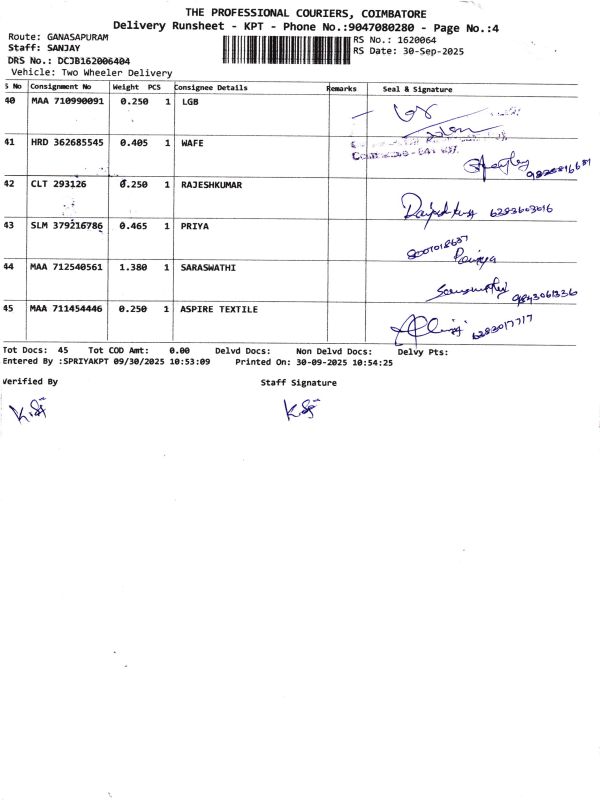 THE PROFESSIONAL COURIERS, COIMBATORE
Delivery Runsheet - KPT - Phone No.:9047080280 - Page No.:4
Route: GANASAPURAM
RS No.: 1620064
Staff: SANJAY
RS Date: 30-Sep-2025
DRS No.: DCJB162006404
Vehicle: Two Wheeler Delivery
S No Consignment No Weight PCS Consignee Details Remarks Seal & Signature
40 MAA 710990091 0.250 1 LGB
41 HRD 362685545 0.405 1 WAFE
42 CLT 293126 0.250 1 RAJESHKUMAR
6283603616
43 SLM 379216786 0.465 1 PRIYA
Priya
44 MAA 712540561 1.380 1 SARASWATHI
9843061336
45 MAA 711454446 0.250 1 ASPIRE TEXTILE
6283017717
Tot Docs: 45 Tot COD Amt: 0.00 Delvd Docs: Non Delvd Docs: Delvy Pts:
Entered By :SPRIYAKPT 09/30/2025 10:53:09 Printed On: 30-09-2025 10:54:25
Verified By Staff Signature